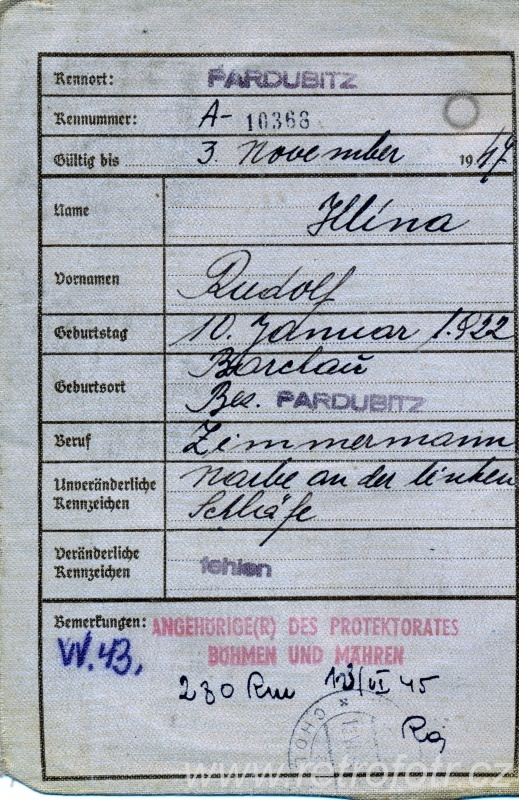 Kennort: PARDUBITZ
Kennummer: A- 10368
Gültig bis 3. November 1947
Name Hlína
Vornamen Rudolf
Geburtstag 10. Januar 1922
Geburtsort
Bes. PARDUBITZ
Beruf Zimmermann
Unveränderliche Kennzeichen Narbe an der linken
Schläfe
Veränderliche
Kennzeichen fehlen
Bemerkungen: ANGEHÖRIGE(R) DES PROTEKTORATES
BÖHMEN UND MÄHREN
VV.43.
280 Rm 45
www.retrofotr.cz